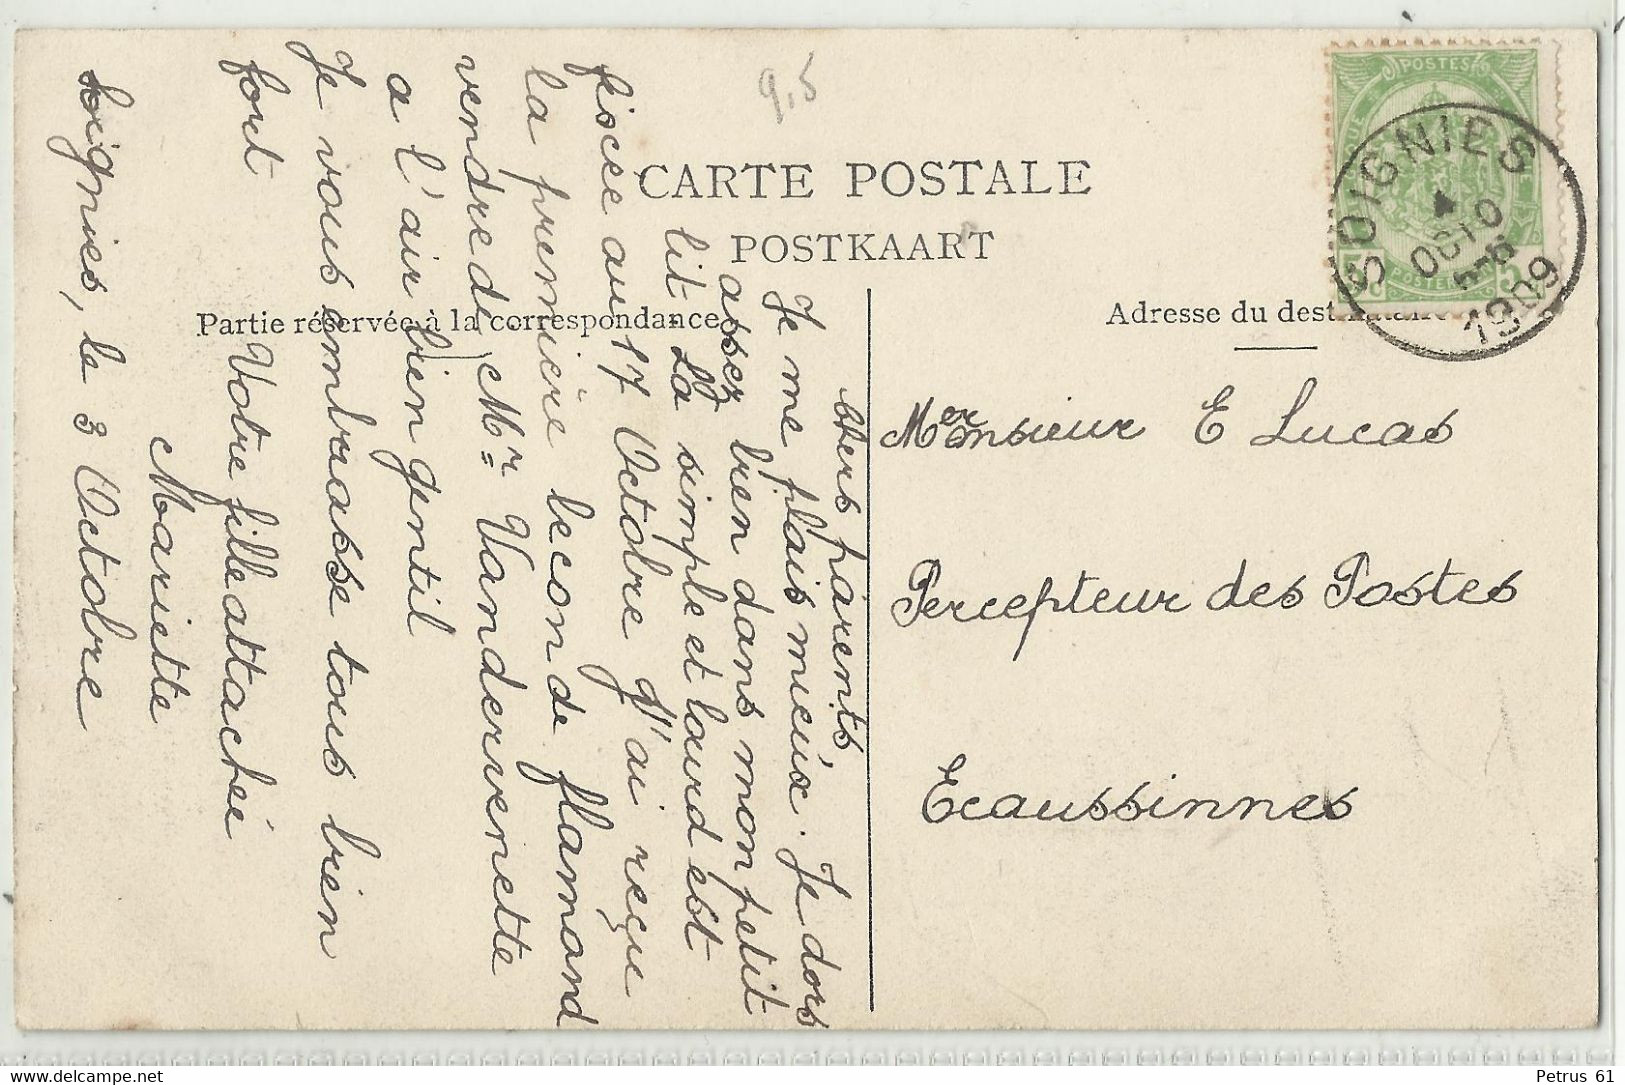 9,5
CARTE POSTALE
POSTKAART
Partie réservée à la correspondance
Adresse du
POSTES
POSTERIJEN
5
SOIGNIES
4
OCTO
5-6
1909
Monsieur E Lucas
Percepteur des Postes
Ecaussinnes
Chers parents,
Je me plais mieux. Je dors
assez bien dans mon petit
lit. La simple et lourd est
fixée au 17 Octobre J'ai reçu
la première lecon de flamand
vendredi (Mr Vandervenette
a l'air bien gentil
Je vous embrasse tous bien
fort
Votre fille attachée
Mariette
Soignies, le 3 Octobre
Petrus 61